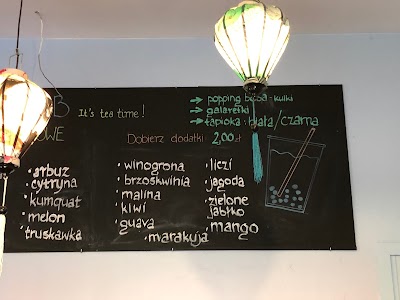 It's tea time!
→ popping boba - kulki
→ galaretki
→ tapioka - biała/czarna
Dobierz dodatki 2,00zł
• arbuz
• cytryna
• kumquat
• melon
• truskawka
• winogrona
• brzoskwinia
• malina
• kiwi
• guava
• marakuja
• liczi
• jagoda
• zielone
jabłko
• mango